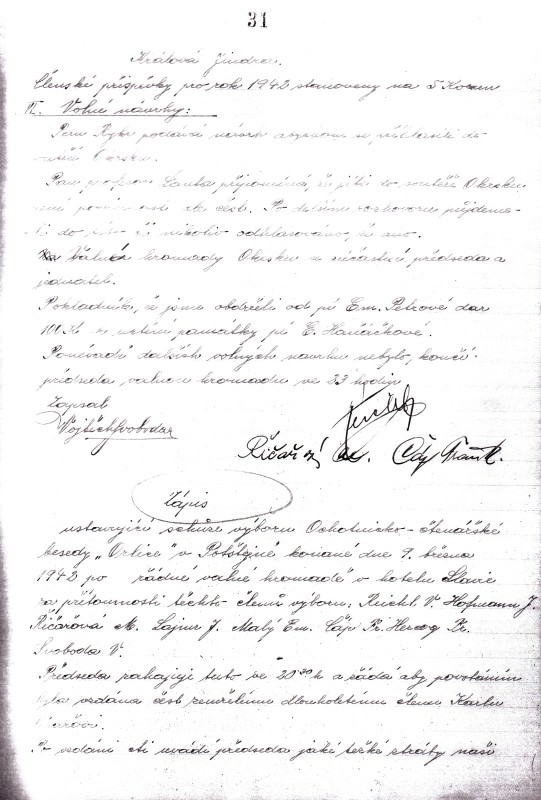 31
Králová Jindra.
Členské příspěvky pro rok 1942 stanoveny na 5 Korun
VI. Volné návrhy:
Pan Rykr podává návrh abychom se přihlásili do
soutěže Okrsku.
Pan profesor připomíná, že jíti do soutěže Okrsku
není povinností ale ctí. Po delším rozhovoru půjdeme-
li do této či nikoliv odhlasováno, že ano.
Valné hromady Okrsku se súčastní předseda a
jednatel.
Pokladník, že jsme obdrželi od pí Em. Petrové dar
100 K k uctění památky pí E. Hančáčkové.
Poněvadž dalších volných návrhů nebylo, končí
předseda valnou hromadu ve 23 hodin
Zapsal
Vojtěch Svoboda
Říčař Čáp Frant.
Zápis
ustavující schůze výboru Ochotnicko-čtenářské
besedy „Orlice" v Potštejně konané dne 9. března
1942 po řádné valné hromadě v hotelu Slavie
za přítomnosti těchto členů výboru. Reichl V. Hofmann J.
Říčařová M. Lajner J. Malý Em. Čáp Fr. Herzog Fr.
Svoboda V.
Předseda zahajuje tuto ve 20³⁰ h a žádá aby povstáním
byla vzdána čest zemřelému dlouholetému členu Karlu
Po vzdání cti uvádí předseda jaké těžké ztráty naši